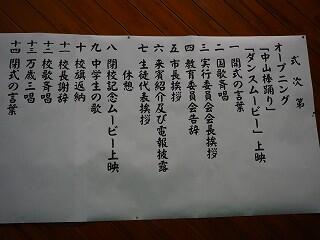 式次第
オープニング
「中山棒踊り」
「ダンスムービー」上映
一 開式の言葉
二 国歌斉唱
三 実行委員会会長挨拶
四 教育委員会告辞
五 市長挨拶
六 来賓紹介及び電報披露
七 生徒代表挨拶
休憩
八 閉校記念ムービー上映
九 中学生の歌
十 校旗返納
十一 校長謝辞
十二 校歌斉唱
十三 万歳三唱
十四 閉式の言葉